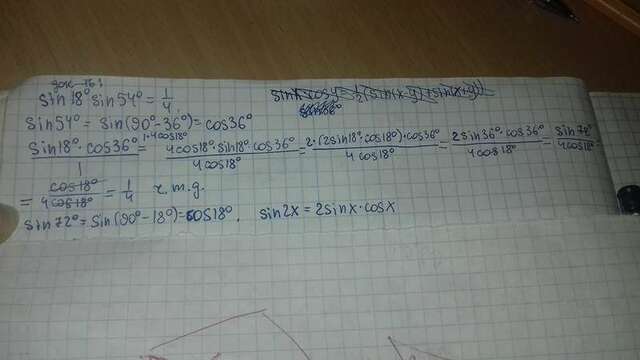 док-ть:
sin18° sin54° = 1/4.
sin54° = sin(90° - 36°) = cos36°
sin18° · cos36° / 1 = 4cos18° · sin18° · cos36° / 4cos18° = 2·(2sin18° · cos18°) · cos36° / 4cos18° = 2sin36° · cos36° / 4cos18° = sin72° / 4cos18° =
= cos18° / 4cos18° = 1/4 ч.т.д.
sin72° = sin(90° - 18°) = cos18°. sin2x = 2sinx · cosx